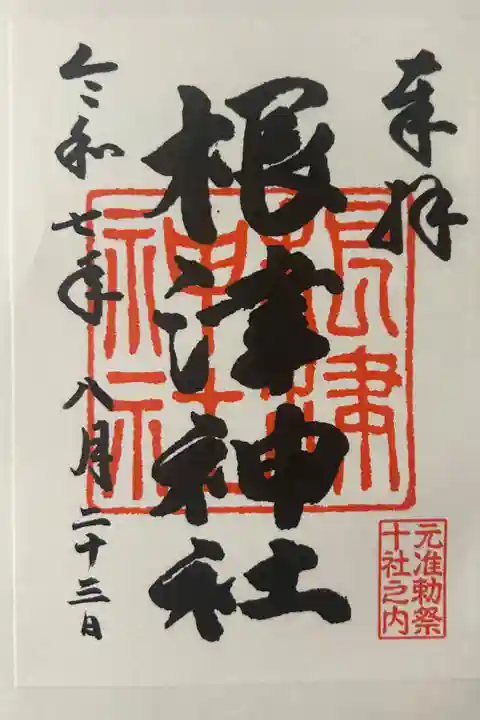 奉拝
根津神社
根津
神社
令和七年八月二十三日
元准勅祭
十社之内